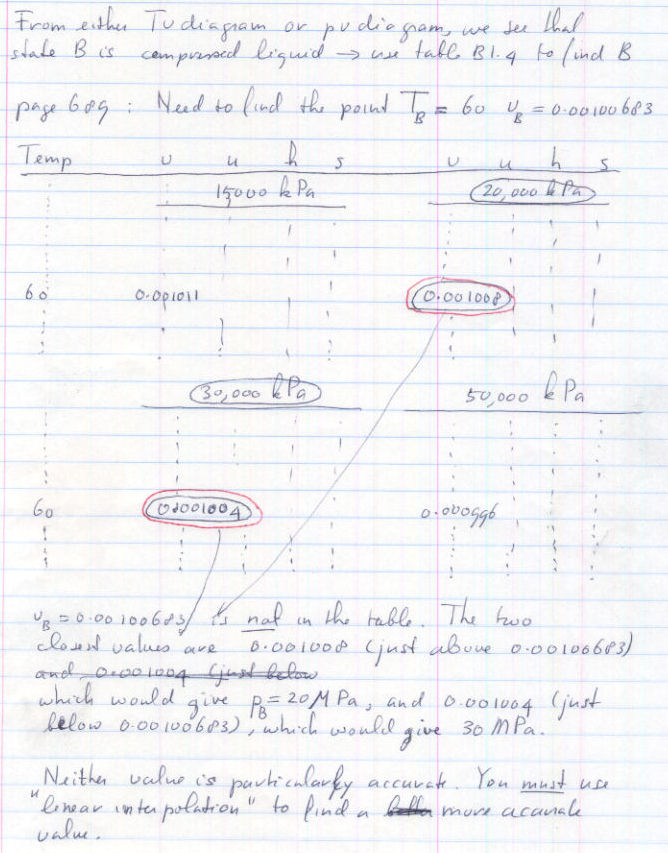 From either Tv diagram or pv diagram, we see that
state B is compressed liquid → use table B1.4 to find B
page 689 : Need to find the point T_B = 60 v_B = 0.00100683
Temp v u h s v u h s
15000 kPa 20,000 kPa
60 0.001011 0.001008
30,000 kPa 50,000 kPa
60 0.001004 0.000996
v_B = 0.00100683 is not in the table. The two
closest values are 0.001008 (just above 0.00100683)
and 0.001004 (just below
which would give p_B = 20 MPa, and 0.001004 (just
below 0.00100683), which would give 30 MPa.
Neither value is particularly accurate. You must use
"linear interpolation" to find a more accurate
value.